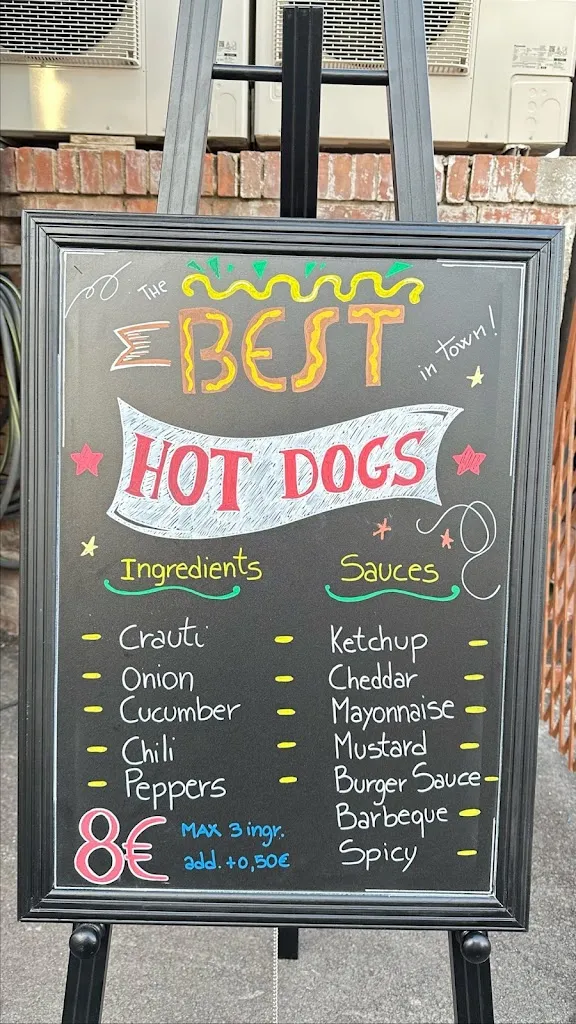 The
BEST
in Town!
HOT DOGS
Ingredients
Crauti
Onion
Cucumber
Chili
Peppers
Sauces
Ketchup
Cheddar
Mayonnaise
Mustard
Burger Sauce
Barbeque
Spicy
8€
MAX 3 ingr.
add. +0,50€